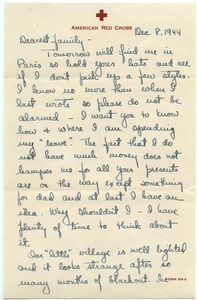 AMERICAN RED CROSS
Dec. 8, 1944
Dearest family -
Tomorrow will find me in
Paris so hold your hats and see
if I don't pick up a few styles.
I know no more than when I
last wrote so please do not be
alarmed - I want you to know
how & where I am spending
my "leave". The fact that I do
not have much money does not
hamper me for all your presents
are on the way except something
for dad and at last I have an
idea. Why shouldn't I - I have
plenty of time to think about
it.
Our "little" village is well lighted
and it looks strange after so
many months of blackout.